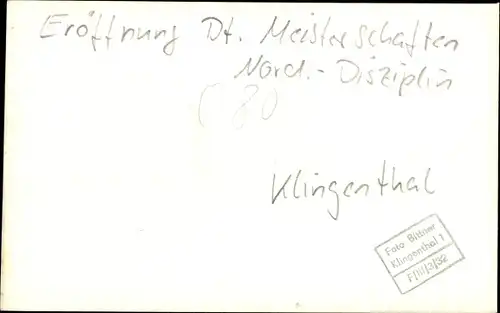 Eröffnung Dt. Meisterschaften
Nord.-Disziplin
(80
Klingenthal
Foto Bittner
Klingenthal 1
F/III/3/32